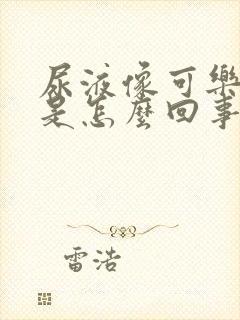 尿液像可樂
是怎麼回事
雷浩